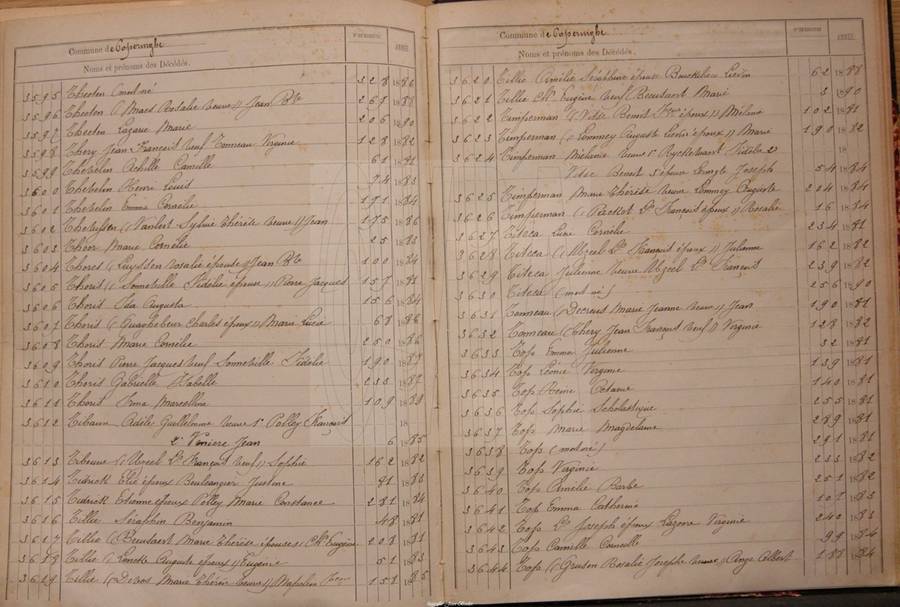 Commune de Poperinghe
N° D'ORDRE
ANNÉE
Noms et prénoms des Décédés.
3595 Theeten (mort né) 328 1886
3596 Theeten (/ Maes Rosalie veuve // Jean Bte 267 1888
3597 Theeten Lazare Marie 206 1890
3598 Thery Jean François veuf Tonneau Virginie 128 1882
3599 Thebelin Achille Camille 61 1881
3600 Thebelin Henri Louis 74 1883
3601 Thebelin Emma Coralie 171 1884
3602 Thelissen (/ Vanlet Sylvie Thérèse veuve // Jean 175 1886
3603 Theer Marie Cornélie 25 1883
3604 Thores (/ Luyssen Rosalie épouse // Jean Bte 100 1884
3605 Thoris (/ Sometville Fidélie épouse // Pierre Jacques 157 1881
3606 Thoris Ida Augusta 156 1884
3607 Thoris (/ Quaghebeur Charles époux // Marie Lucie 68 1886
3608 Thoris Marie Cornélie 250 1886
3609 Thoris Pierre Jacques veuf Sometville Fidélie 190 1887
3610 Thoris Gabrielle Isabelle 233 1887
3611 Thoris Irma Marcelline 109 1889
3612 Tibaun Adèle Guillelmine veuve 1° Polley François 18
2° Venière Jean 6 1885
3613 Tibeuve (/ Uxeel Ls François veuf // Sophie 162 1882
3614 Tidrick Elie époux Beulenquier Justine 81 1883
3615 Tidrick Etienne époux Polley Marie Constance 281 1884
3616 Tillie Séraphin Benjamin 48 1881
3617 Tillie (/ Beussaert Marie Thérèse épouse // Ch. Eugène 208 1881
3618 Tillie (/ Lanotte Auguste époux // Eugénie 51 1883
3619 Tillie (/ Devos Marie Thérèse veuve // Napoléon 151 1885
Commune de Poperinghe
N° D'ORDRE
ANNÉE
Noms et prénoms des Décédés.
3620 Tillie Amélie Séraphine épouse Busckeheu Liévin 62 1888
3621 Tillie Ch. Eugène veuf Beussaert Marie 3 1890
3622 Timperman (/ Vitse Benoit époux // Mélanie 102 1881
3623 Timperman (/ Lommey Auguste Louis époux // Marie 190 1882
3624 Timperman Mélanie veuve 1° Ryckelvaert Fidèle 2° 18
Vitse Benoit 3° épouse Lingle Joseph 54 1884
3625 Timperman Marie Thérèse veuve Lommey Auguste 204 1884
3626 Timperman (/ Packet Ls François époux // Rosalie 16 1884
3627 Titeca Luce Cornélie 234 1881
3628 Titeca (/ Uxeel Ls François époux // Julienne 162 1882
3629 Titeca Julienne veuve Uxeel Ls François 239 1882
3630 Titeca (mort né) 256 1890
3631 Tonneau (/ Decrois Marie Jeanne veuve // Jean 190 1881
3632 Tonneau (/ Thery Jean François veuf // Virginie 128 1882
3633 Tops Emma Julienne 32 1881
3634 Tops Léonie Virginie 139 1881
3635 Tops Reine Octavie 140 1881
3636 Tops Sophie Scholastique 255 1881
3637 Tops Marie Magdelaine 289 1881
3638 Tops (mort né) 291 1881
3639 Tops Virginie 233 1882
3640 Tops Amélie Barbe 251 1882
3641 Tops Emma Catherine 107 1883
3642 Tops Ls Joseph époux Lazone Virginie 240 1883
3643 Tops Camille Corneille 99 1884
3644 Tops (/ Gruson Rosalie Josephe veuve // Ange Albert 188 1884